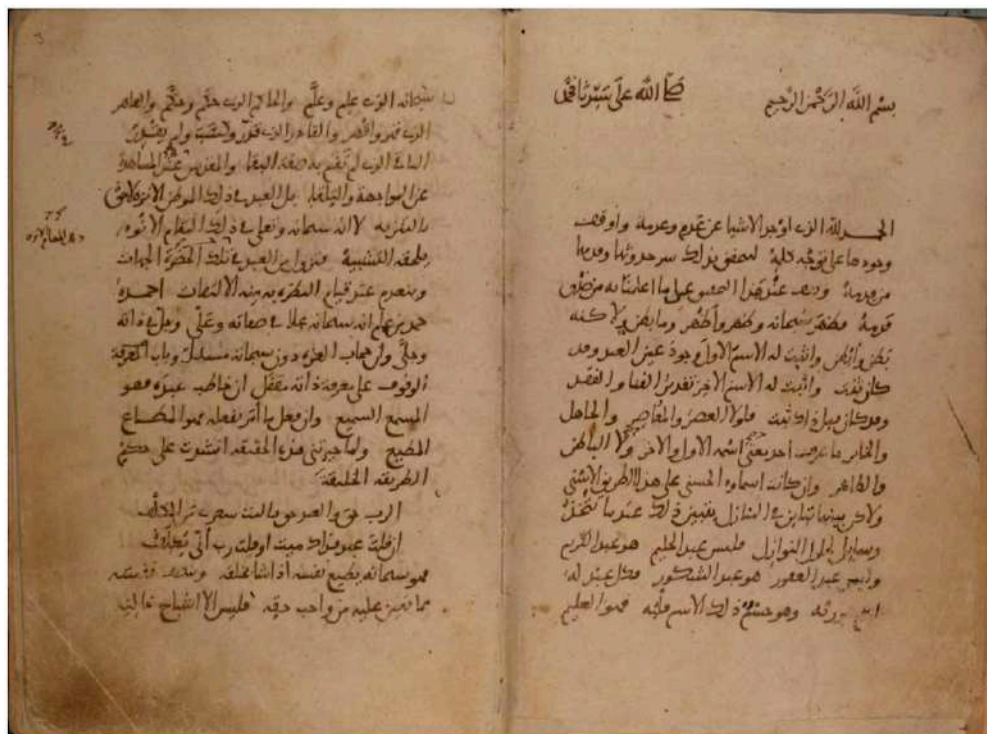 بسم الله الرحمن الرحيم
الحمد لله الذي اوجد الاشيا عن عدم وعدمه واوقف
وجودها على توجه كلمه لنحقق بذلك سر حدوثها وقدمها
من قدمه ونقف عند هذا التحقيق على ما اعلمنا به من صدق
قدمه فظهر سبحانه وظهر واظهر وما بطن ولاكنه
بطن وابطن واثبت له الاسم الاول وجود عين العبد وقد
كان ثبت واثبت له الاسم الاخر تقدير الفنا والفقد
وقد كان قبل ذلك ثبت فلولا العصر والمعاصر والجاهل
والخابر ما عرف احد معنى اسمه الاول والاخر ولا الباطن
والظاهر وان كانت اسماوه الحسنى على هذا الطريق الاسنى
ولاكن بينها تباين في المنازل يتبين ذلك عندما تتخذ
وسايل لحلول النوازل فليس عبد الحليم هو عبد الكريم
وليس عبد الغفور هو عبد الشكور فكل عبد له
اسم هو ربه وهو جسم ذلك الاسم قلبه فهو العليم
سبحانه الذي علم وعلم والحاكم الذي حكم وحكم والقاهر
الذي قهر واقهر والقادر الذي قدر وكسب ولم يقدر
الباقي الذي لم تقم به صفة البقا والمقدس عند المشاهدة
عن المواجهة والتلقا بل العبد في ذلك الموطن الانزه لاحق
بالتنزيه لا انه سبحانه وتعلى في ذلك المقام الانوه
يلحقه التشبيه فتزول من العبد في تلك الحضرة الجهات
وينعدم عند قيام النظرة به منه الالتفات احمده
حمد من علم انه سبحانه علا في صفاته وعلى وجل في ذاته
وجلى وان حجاب العزة دون سبحاته مسدل وباب
الوقوف على معرفة ذاته مقفل ان خاطب عبده فهو
المسمع السميع وان فعل ما امر بفعله فهو المطاع
المطيع ولما حيرتني هذه الحقيقة انشدت على حكم
الطريقة الخليقة
الرب حق والعبد حق يا ليت شعري من المكلف
ان قلت عبد فذاك ميت او قلت رب انى يكلف
فهو سبحانه يطيع نفسه اذا شا بخلقه وينصف نفسه
مما تعين عليه من واجب حقه فليس الا اشباح خالية